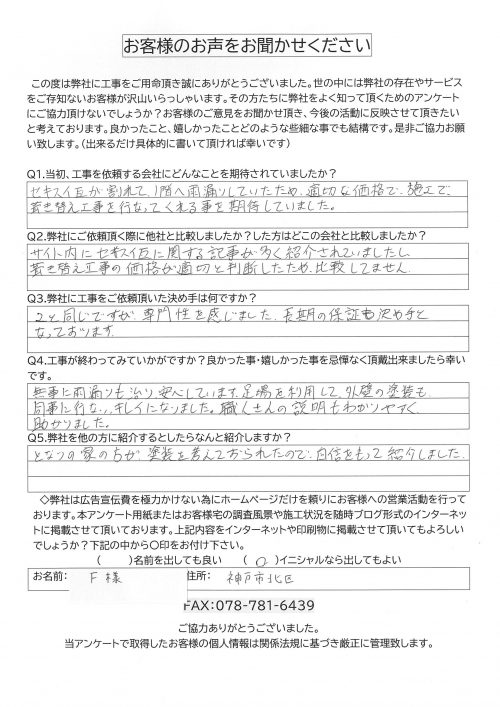 お客様のお声をお聞かせください
この度は弊社に工事をご用命頂き誠にありがとうございました。世の中には弊社の存在やサービス
をご存知ないお客様が沢山いらっしゃいます。その方たちに弊社をよく知って頂くためのアンケート
にご協力頂けないでしょうか？お客様のご意見をお聞かせ頂き、今後の活動に反映させて頂きたい
と考えております。良かったこと、嬉しかったことどのような些細な事でも結構です。是非ご協力お願
い致します。（出来るだけ具体的に書いて頂ければ幸いです）
Q1.当初、工事を依頼する会社にどんなことを期待されていましたか？
セキスイ瓦が割れて、1階へ雨漏りしていたため、適切な価格で、施工で、
葺き替え工事を行なってくれる事を期待していました。
Q2.弊社にご依頼頂く際に他社と比較しましたか？した方はどこの会社と比較しましたか？
サイト内にセキスイ瓦に関する記事が多く紹介されていましたし
葺き替え工事の価格が適切と判断したため、比較してません。
Q3.弊社に工事をご依頼頂いた決め手は何ですか？
2と同じですが、専門性を感じました。長期の保証も決め手と
なっております。
Q4.工事が終わってみていかがですか？良かった事・嬉しかった事を忌憚なく頂戴出来ましたら幸い
です。
無事に雨漏りも治り、安心しています。足場を利用して、外壁の塗装も
同時に行ない、キレイになりました。職人さんの説明もわかりやすく、
助かりました。
Q5.弊社を他の方に紹介するとしたらなんと紹介しますか？
となりの家の方が塗装を考えておられたので、自信をもって紹介しました。
◇弊社は広告宣伝費を極力かけない為にホームページだけを頼りにお客様への営業活動を行って
おります。本アンケート用紙またはお客様宅の調査風景や施工状況を随時ブログ形式のインターネッ
トに掲載させて頂いております。上記内容をインターネットや印刷物に掲載させて頂いてもよろしい
でしょうか？下記の中から〇印をお付け下さい。
（　　）名前を出しても良い　（ ○ ）イニシャルなら出してもよい
お名前: F 様　住所: 神戸市北区
FAX:078-781-6439
ご協力ありがとうございました。
当アンケートで取得したお客様の個人情報は関係法規に基づき厳正に管理致します。